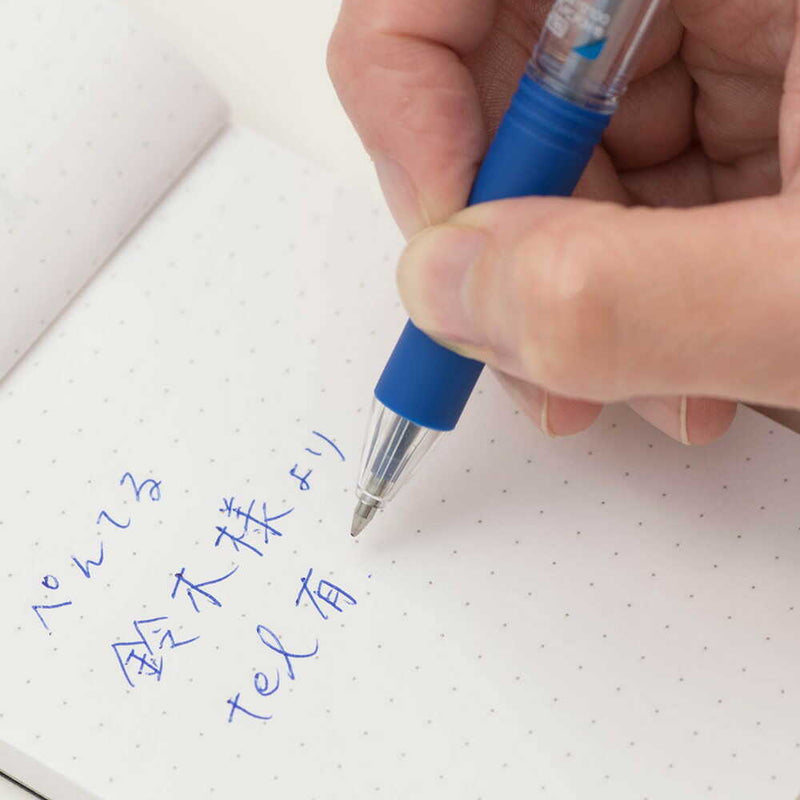 ぺんてる
鈴木様より
tel 有